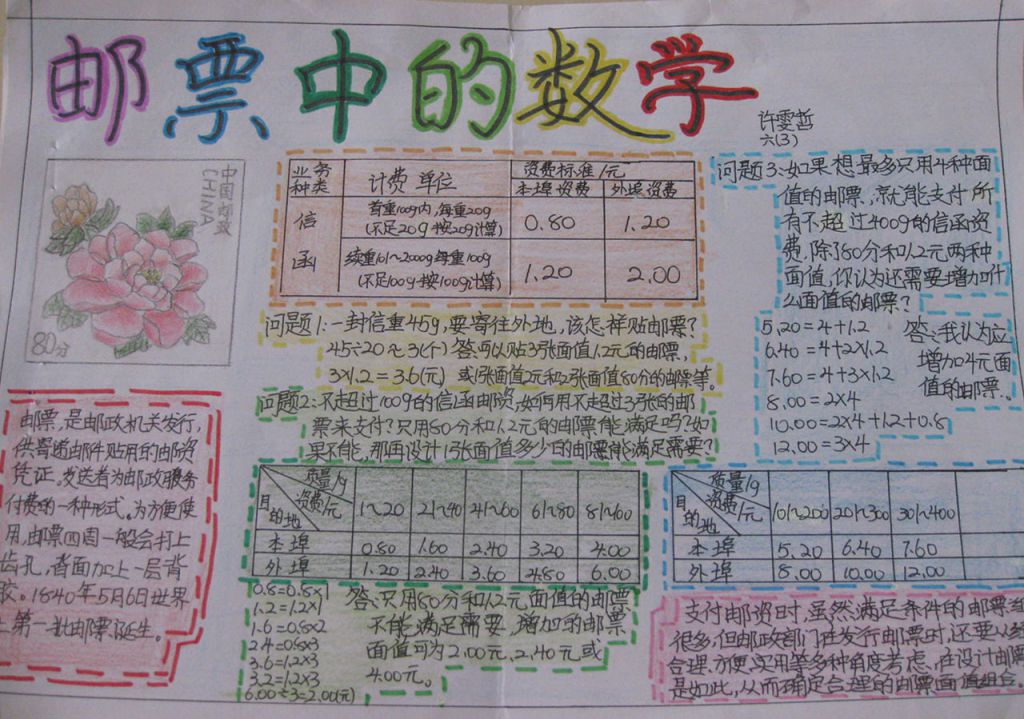 邮票中的数学
许雯哲
六(3)
中国邮政
CHINA
80分
邮票,是邮政机关发行,
供寄递邮件贴用的邮资
凭证。发送者为邮政服务
付费的一种形式。为方便使
用,邮票四周一般会打上
齿孔,背面加上一层背
胶。1840年5月6日世界
上第一批邮票诞生。
业务种类 计费单位 资费标准/元
本埠资费 外埠资费
信函 首重100g内,每重20g(不足20g按20g计算) 0.80 1.20
续重101~2000g每重100g(不足100g按100g计算) 1.20 2.00
问题1:一封信重45g,要寄往外地,该怎样贴邮票?
45÷20≈3(个) 答:可以贴3张面值1.2元的邮票,
3×1.2=3.6(元) 或1张面值2元和2张面值80分的邮票等。
问题2:不超过100g的信函邮资,如何用不超过3张的邮
票来支付?只用80分和1.2元的邮票能满足吗?如
果不能,那再设计1张面值多少的邮票能满足需要?
目的地 资费/元 质量/g 1~20 21~40 41~60 61~80 81~100
本埠 0.80 1.60 2.40 3.20 4.00
外埠 1.20 2.40 3.60 4.80 6.00
0.8=0.8×1
1.2=1.2×1
1.6=0.8×2
2.4=0.8×3
3.6=1.2×3
3.2=1.2×3
6.00÷3=2.00(元)
答:只用80分和1.2元面值的邮票
不能满足需要,增加的邮票
面值可为2.00元、2.40元或
4.00元。
问题3:如果想最多只用4种面
值的邮票,就能支付所
有不超过400g的信函资
费,除了80分和1.2元两种
面值,你认为还需要增加什
么面值的邮票?
5.20=4+1.2
6.40=4+2×1.2
7.60=4+3×1.2
8.00=2×4
10.00=2×4+1.2+0.8
12.00=3×4
答:我认为应
增加4元面
值的邮票。
目的地 资费/元 质量/g 101~200 201~300 301~400
本埠 5.20 6.40 7.60
外埠 8.00 10.00 12.00
支付邮资时,虽然满足条件的邮票组
很多,但邮政部门在发行邮票时,还要从经
合理、方便、实用等多种角度考虑,在设计邮票
是如此,从而确定合理的邮票面值组合。